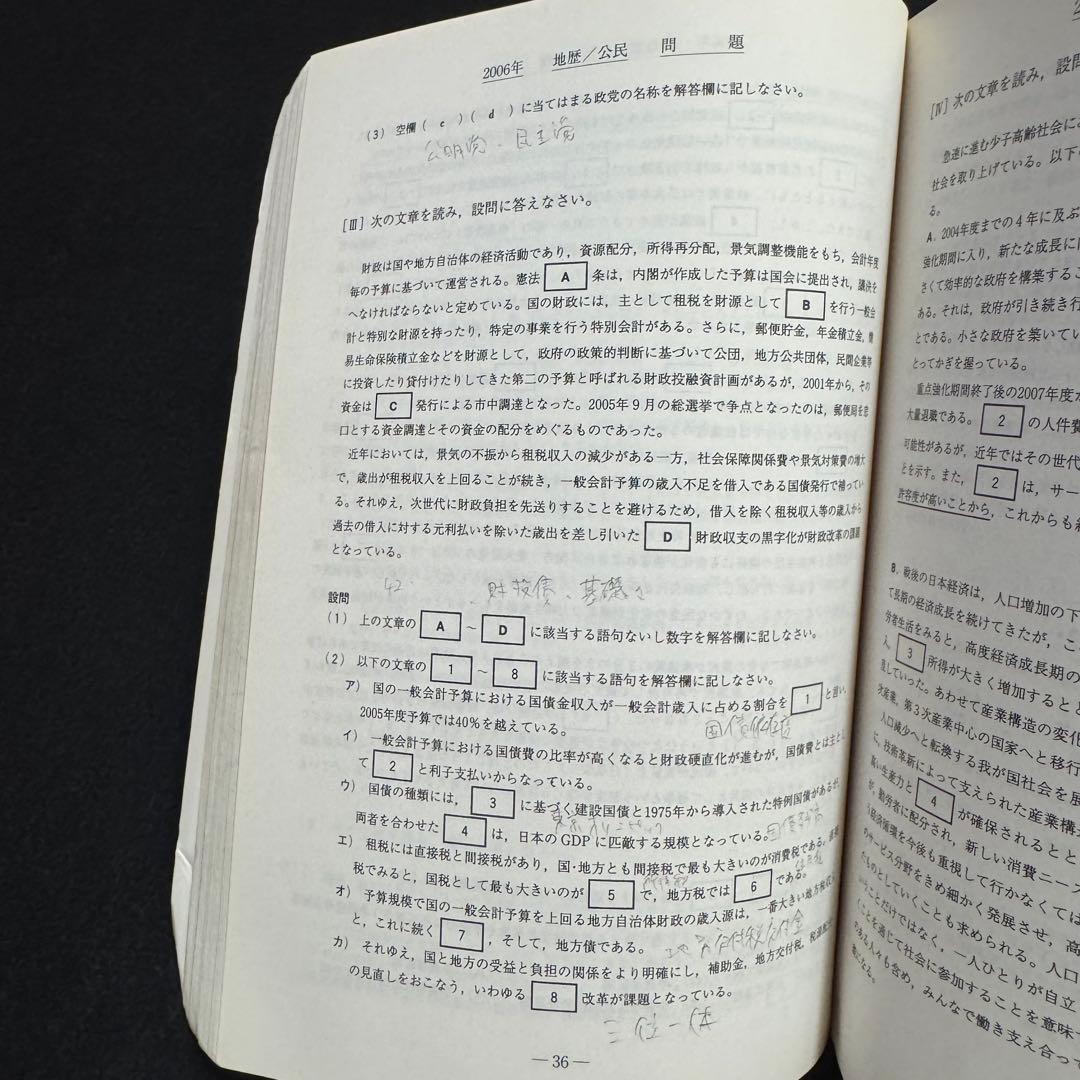 2006年 地歴/公民 問 題
(3) 空欄( c )( d )に当てはまる政党の名称を解答欄に記しなさい。
公明党、民主党
[Ⅲ] 次の文章を読み,設問に答えなさい。
財政は国や地方自治体の経済活動であり,資源配分,所得再分配,景気調整機能をもち,会計年度
毎の予算に基づいて運営される。憲法 A 条は,内閣が作成した予算は国会に提出され,議決を
へなければならないと定めている。国の財政には,主として租税を財源として B を行う一般会
計と特別な財源を持ったり,特定の事業を行う特別会計がある。さらに,郵便貯金,年金積立金,簡
易生命保険積立金などを財源として,政府の政策的判断に基づいて公団,地方公共団体,民間企業等
に投資したり貸付けたりしてきた第二の予算と呼ばれる財政投融資計画があるが,2001年から,その
資金は C 発行による市中調達となった。2005年9月の総選挙で争点となったのは,郵便局を窓
口とする資金調達とその資金の配分をめぐるものであった。
近年においては,景気の不振から租税収入の減少がある一方,社会保障関係費や景気対策費の増大
で,歳出が租税収入を上回ることが続き,一般会計予算の歳入不足を借入である国債発行で補ってい
る。それゆえ,次世代に財政負担を先送りすることを避けるため,借入を除く租税収入等の歳入から
過去の借入に対する元利払いを除いた歳出を差し引いた D 財政収支の黒字化が財政改革の課題
となっている。
財投債、基礎的
設問
(1) 上の文章の A ~ D に該当する語句ないし数字を解答欄に記しなさい。
(2) 以下の文章の 1 ~ 8 に該当する語句を解答欄に記しなさい。
ア) 国の一般会計予算における国債金収入が一般会計歳入に占める割合を 1 と言い,
2005年度予算では40%を越えている。
国債依存度
イ) 一般会計予算における国債費の比率が高くなると財政硬直化が進むが,国債費とは主とし
て 2 と利子支払いからなっている。
ウ) 国債の種類には, 3 に基づく建設国債と1975年から導入された特例国債があるが,
両者を合わせた 4 は,日本のGDPに匹敵する規模となっている。
エ) 租税には直接税と間接税があり,国・地方とも間接税で最も大きいのが消費税である。直接
税でみると,国税として最も大きいのが 5 で,地方税では 6 である。
オ) 予算規模で国の一般会計予算を上回る地方自治体財政の歳入源は,一番大きい地方税収入
と,これに続く 7 ,そして,地方債である。
地方交付税交付金
カ) それゆえ,国と地方の受益と負担の関係をより明確にし,補助金,地方交付税,税源配分
の見直しをおこなう,いわゆる 8 改革が課題となっている。
三位一体
—36—
[Ⅳ] 次の文章を読み,設問
急速に進む少子高齢社会に
社会を取り上げている。以下
る。
A.2004年度までの4年に及ぶ
強化期間に入り,新たな成長に
さくて効率的な政府を構築するこ
ある。それは,政府が引き続き行
とである。小さな政府を築いてい
とってかぎを握っている。
重点強化期間終了後の2007年度
大量退職である。 2 の人件費
可能性があるが,近年ではその世代
とを示す。また, 2 は,サー
許容度が高いことから,これからも
B.戦後の日本経済は,人口増加の下
て長期の経済成長を続けてきたが,こ
労者生活をみると,高度経済成長期の
入, 3 所得が大きく増加すると
進していった。あわせて産業構造の変化
次産業,第3次産業中心の国家へと移行
人口減少へと転換する我が国社会を展
に,技術革新によって支えられた産業構造
高い生産力と 4 が確保されるとと
が,勤労者に配分され,新しい消費ニーズ
経済循環を今後も重視して行かなくては
のサービス分野をきめ細かく発展させ,高
たものとしていくことも求められる。人口
いうことだけではなく,一人ひとりが自立
ことを通じて社会に参加することを意味
のある人々も含め,みんなで働き支え合っ